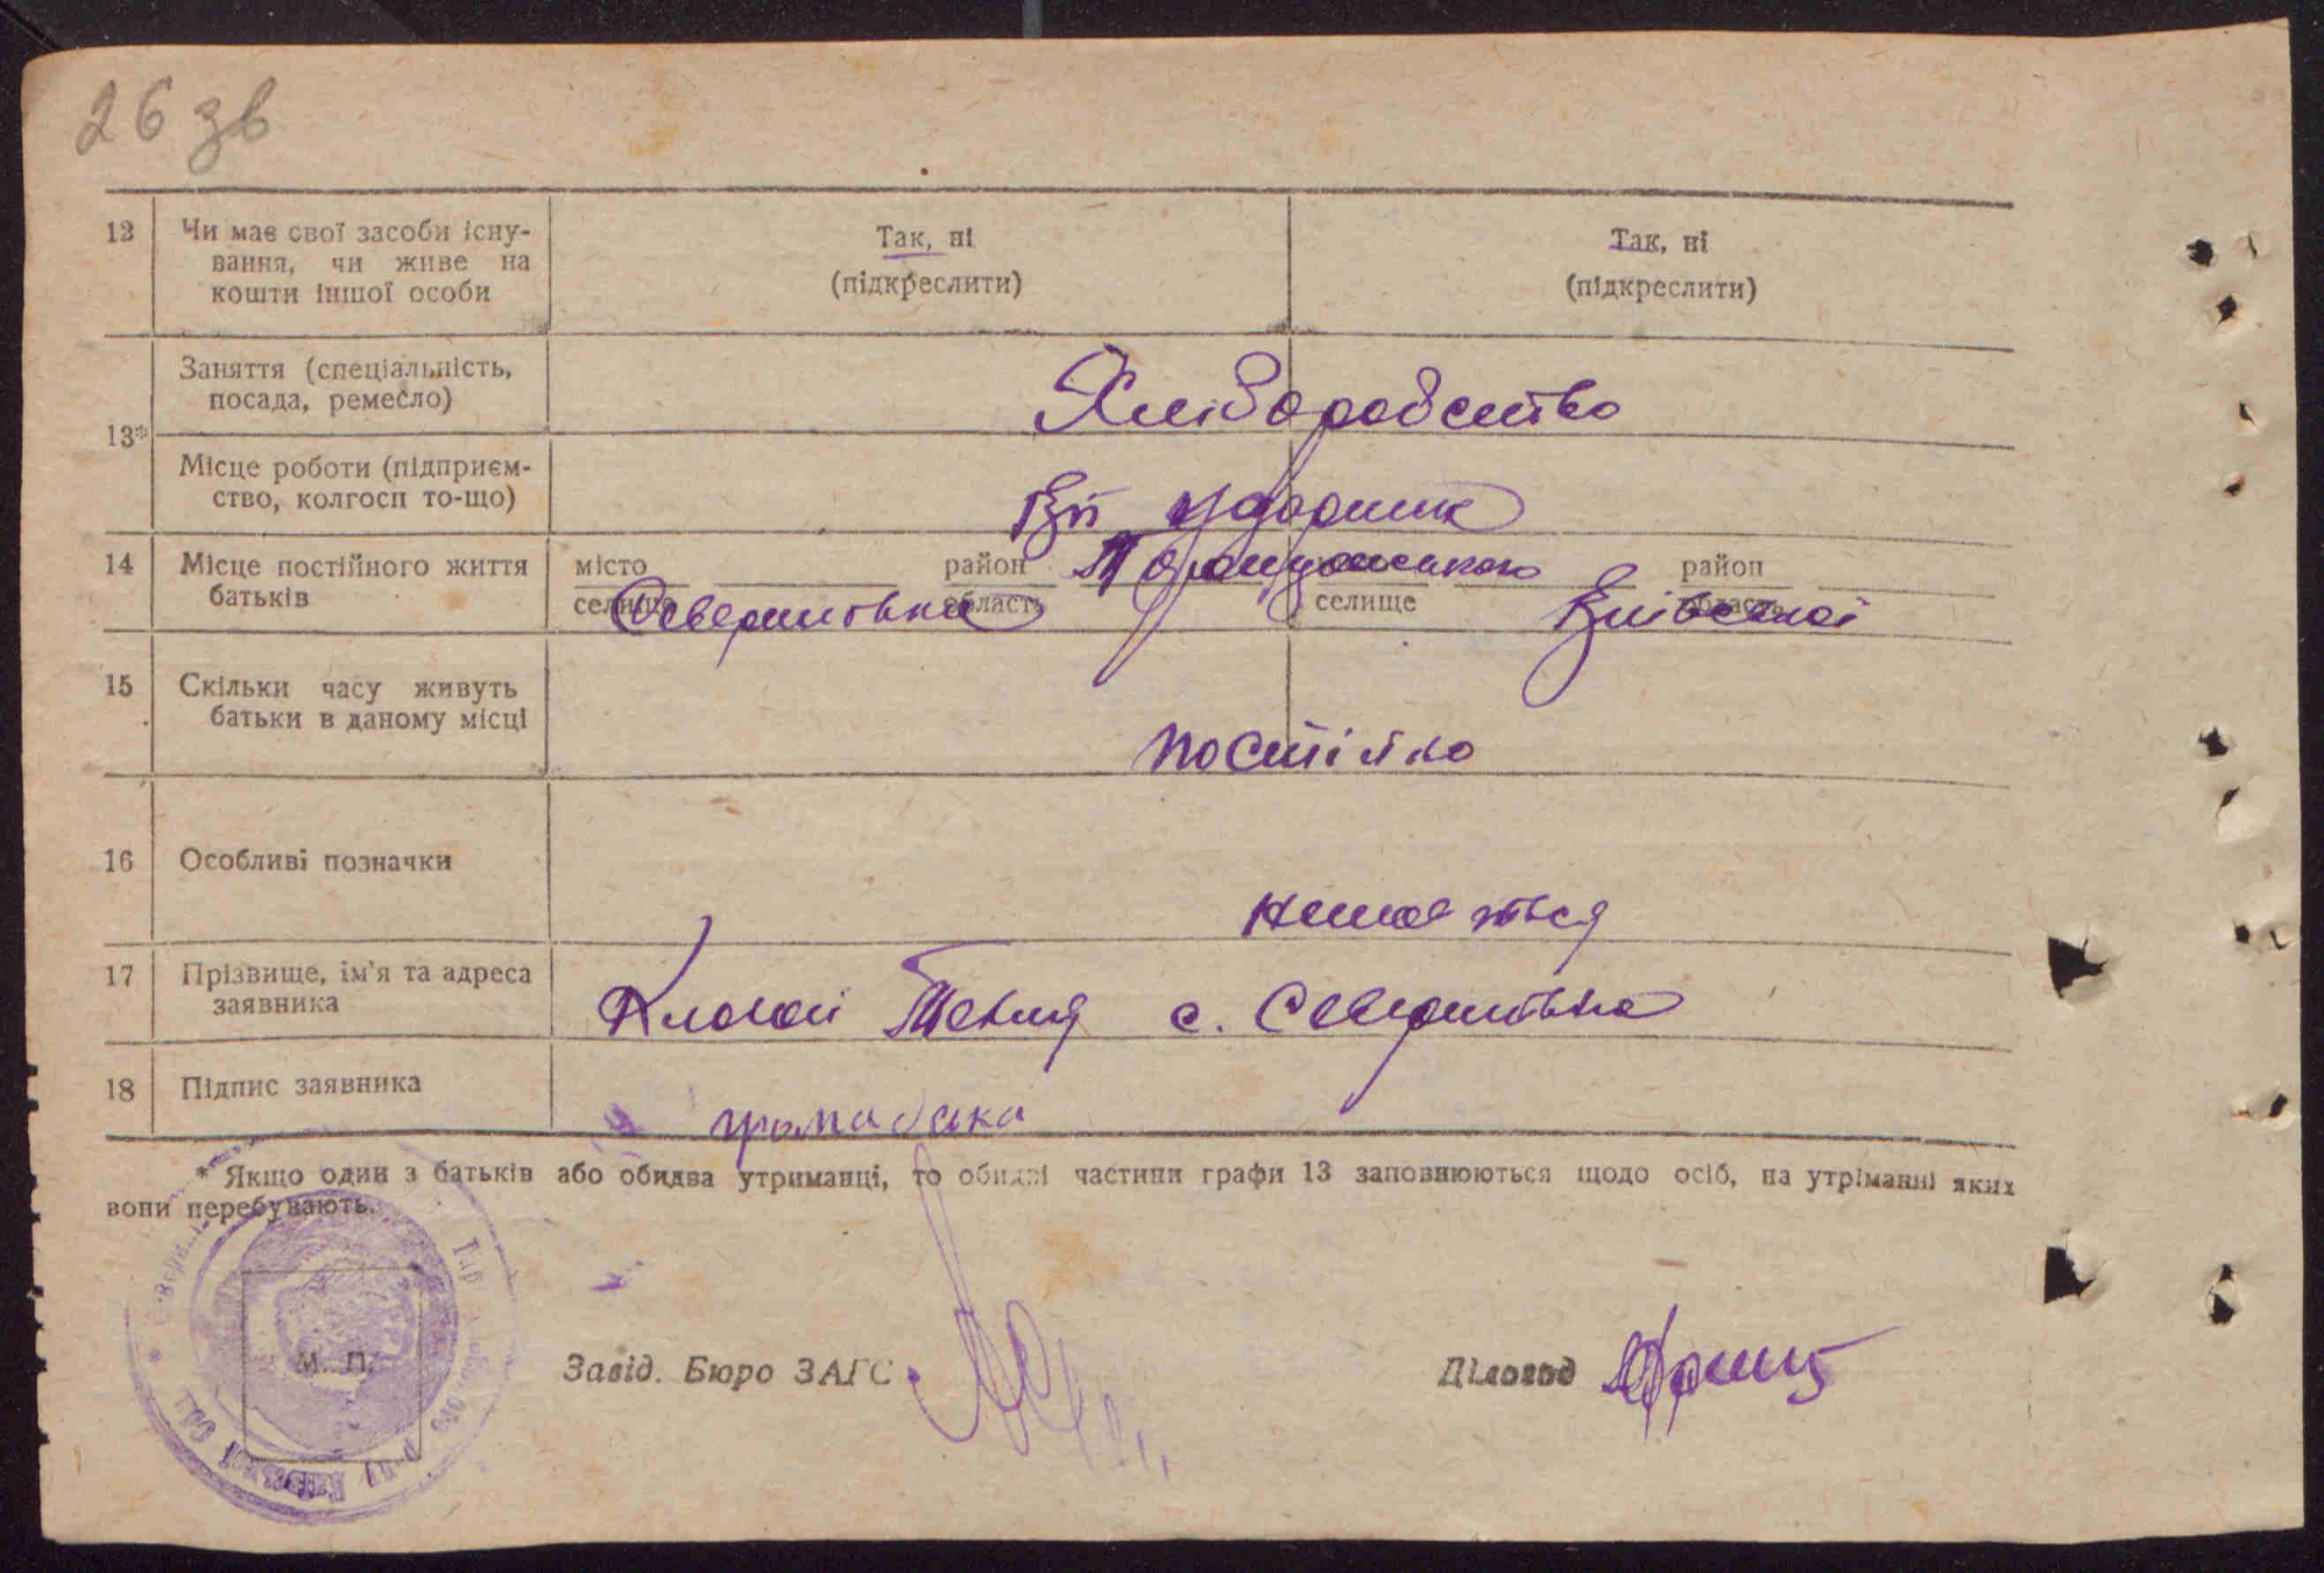 26 зв
12 Чи має свої засоби існу-
вання, чи живе на
кошти іншої особи
Так, ні
(підкреслити)
Так, ні
(підкреслити)
13*
Заняття (спеціальність,
посада, ремесло)
Хліборобство
Місце роботи (підприєм-
ство, колгосп то-що)
Ударник
14 Місце постійного життя
батьків
місто район Таращанського район
селище Северинівка область селище Київської область
15 Скільки часу живуть
батьки в даному місці
постійно
16 Особливі позначки
17 Прізвище, ім'я та адреса
заявника
с. Северинівка
18 Підпис заявника
громадська
* Якщо один з батьків або обидва утриманці, то обидві частини графи 13 заповнюються щодо осіб, на утріманні яких
вони перебувають.
М. П.
Завід. Бюро ЗАГС
Діловод